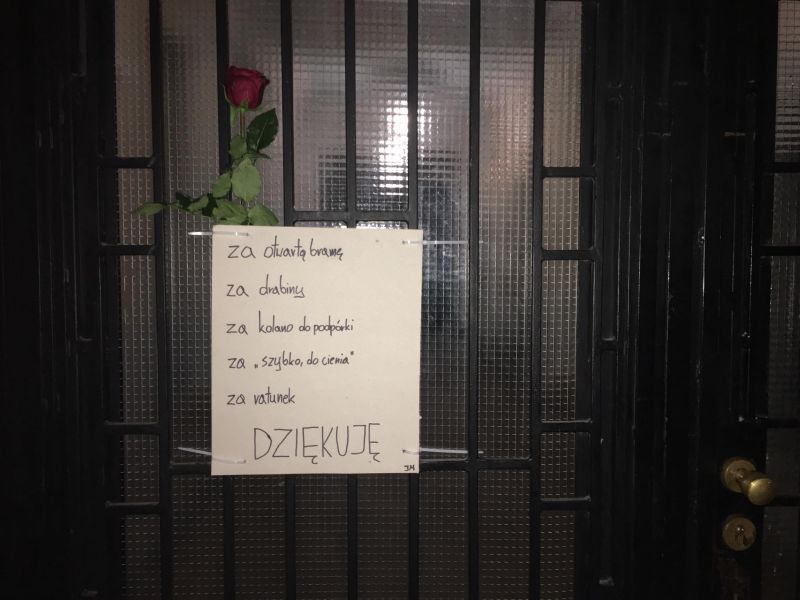 za otwartą bramę
za drabiny
za kolano do podpórki
za „szybko, do cienia”
za ratunek
DZIĘKUJĘ
JM